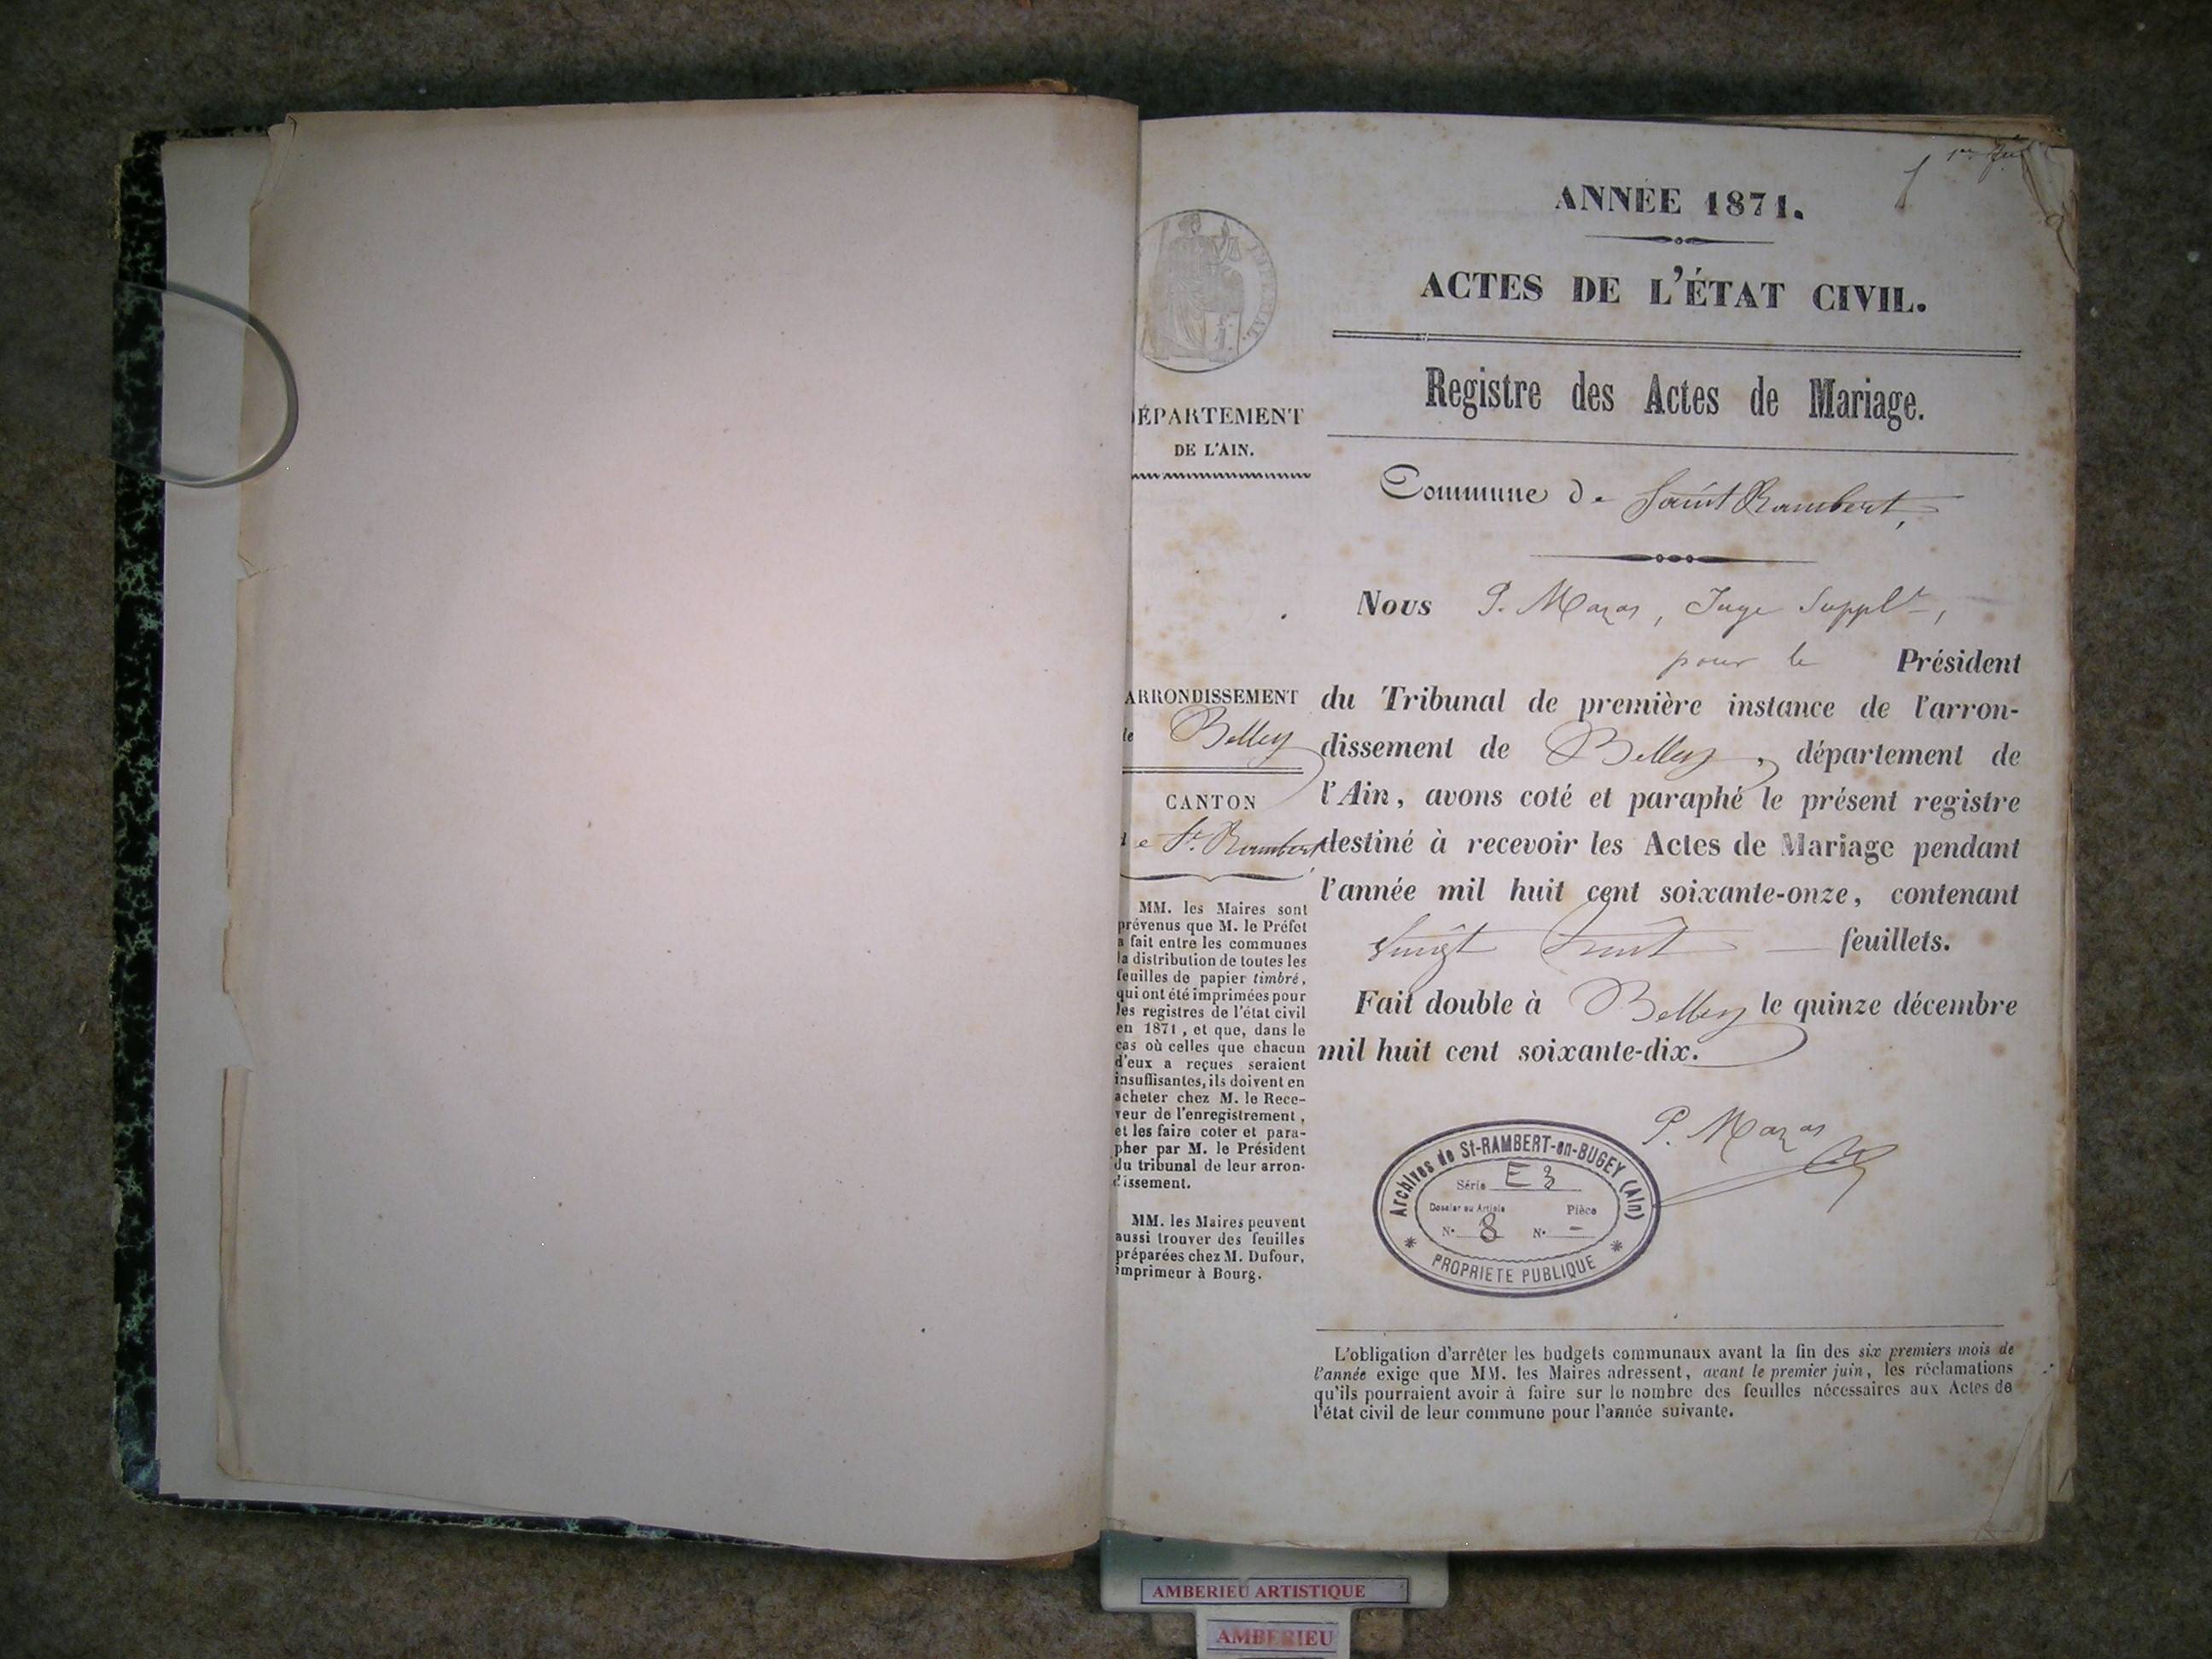 ANNÉE 1871.
ACTES DE L'ÉTAT CIVIL.
Registre des Actes de Mariage.
Commune de Saint Rambert,
Nous P. Mazas, Juge Suppl.t,
pour le Président
du Tribunal de première instance de l'arron-
dissement de Belley, département de
l'Ain, avons coté et paraphé le présent registre
destiné à recevoir les Actes de Mariage pendant
l'année mil huit cent soixante-onze, contenant
vingt huit feuillets.
Fait double à Belley le quinze décembre
mil huit cent soixante-dix.
P. Mazas
ÉPARTEMENT
DE L'AIN.
ARRONDISSEMENT
de Belley
CANTON
de St. Rambert
MM. les Maires sont
prévenus que M. le Préfet
a fait entre les communes
la distribution de toutes les
feuilles de papier timbré,
qui ont été imprimées pour
les registres de l'état civil
en 1871, et que, dans le
cas où celles que chacun
d'eux a reçues seraient
insuffisantes, ils doivent en
acheter chez M. le Rece-
veur de l'enregistrement,
et les faire coter et para-
pher par M. le Président
du tribunal de leur arron-
dissement.
MM. les Maires peuvent
aussi trouver des feuilles
préparées chez M. Dufour,
imprimeur à Bourg.
Archives de St-RAMBERT-en-BUGEY (Ain)
Série E 3
Dossier ou Article Pièce
N° 8 N° -
PROPRIETE PUBLIQUE
L'obligation d'arrêter les budgets communaux avant la fin des six premiers mois de
l'année exige que MM. les Maires adressent, avant le premier juin, les réclamations
qu'ils pourraient avoir à faire sur le nombre des feuilles nécessaires aux Actes de
l'état civil de leur commune pour l'année suivante.
AMBERIEU ARTISTIQUE
AMBERIEU